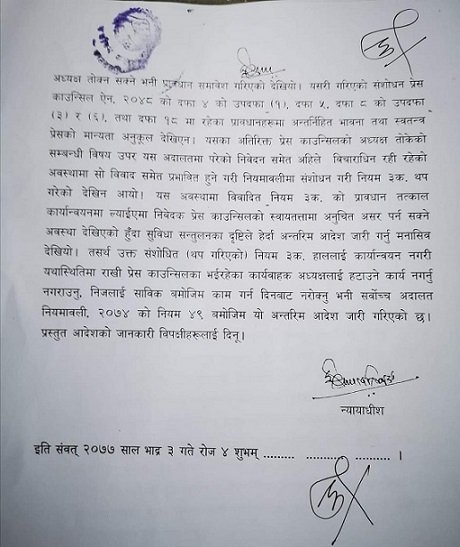 अध्यक्ष तोक्न सक्ने भनी प्रावधान समावेश गरिएको देखियो। यसरी गरिएको संशोधन प्रेस
काउन्सिल ऐन, २०४८ को दफा ४ को उपदफा (१), दफा ५, दफा ८ को उपदफा
(३) र (६), तथा दफा १८ मा रहेका प्रावधानहरूमा अन्तर्निहित भावना तथा स्वतन्त्र
प्रेसको मान्यता अनुकूल देखिएन। यसका अतिरिक्त प्रेस काउन्सिलको अध्यक्ष तोकेको
सम्बन्धी विषय उपर यस अदालतमा परेको निवेदन समेत अहिले विचाराधिन रही रहेको
अवस्थामा सो विवाद समेत प्रभावित हुने गरी नियमावलीमा संशोधन गरी नियम ३क. थप
गरेको देखिन आयो। यस अवस्थामा विवादित नियम ३क. को प्रावधान तत्काल
कार्यान्वयनमा ल्याईएमा निवेदक प्रेस काउन्सिलको स्वायत्ततामा अनुचित असर पर्न सक्ने
अवस्था देखिएको हुँदा सुविधा सन्तुलनका दृष्टिले हेर्दा अन्तरिम आदेश जारी गर्नु मनासिव
देखियो। तसर्थ उक्त संशोधित (थप गरिएको) नियम ३क. हाललाई कार्यान्वयन नगरी
यथास्थितिमा राखी प्रेस काउन्सिलका भईरहेका कार्यवाहक अध्यक्षलाई हटाउने कार्य नगर्नु
नगराउनु, निजलाई साविक बमोजिम काम गर्न दिनबाट नरोक्नु भनी सर्वोच्च अदालत
नियमावली, २०७४ को नियम ४९ बमोजिम यो अन्तरिम आदेश जारी गरिएको छ।
प्रस्तुत आदेशको जानकारी विपक्षीहरूलाई दिनू।
न्यायाधीश
इति संवत् २०७७ साल भाद्र ३ गते रोज ४ शुभम् .......... .......... .......... ।